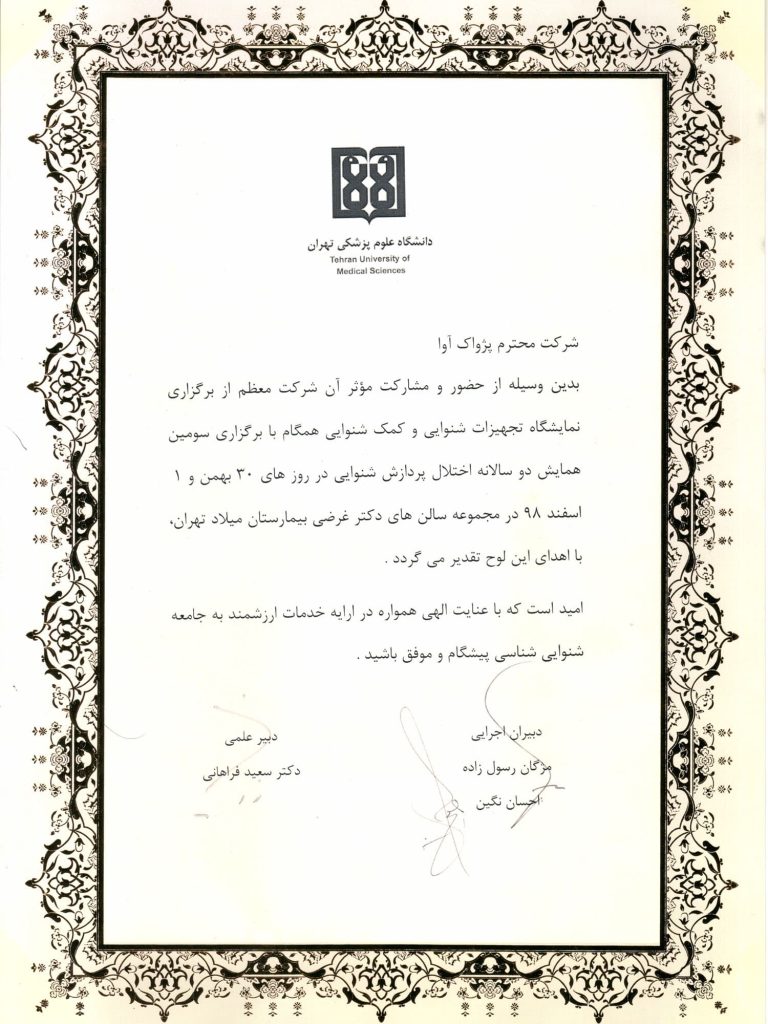 دانشگاه علوم پزشکی تهران
Tehran University of
Medical Sciences
شرکت محترم پژواک آوا
بدین وسیله از حضور و مشارکت مؤثر آن شرکت معظم از برگزاری
نمایشگاه تجهیزات شنوایی و کمک شنوایی همگام با برگزاری سومین
همایش دو سالانه اختلال پردازش شنوایی در روز های ۳۰ بهمن و ۱
اسفند ۹۸ در مجموعه سالن های دکتر غرضی بیمارستان میلاد تهران،
با اهدای این لوح تقدیر می گردد .
امید است که با عنایت الهی همواره در ارایه خدمات ارزشمند به جامعه
شنوایی شناسی پیشگام و موفق باشید .
دبیران اجرایی
مژگان رسول زاده
احسان نگین
دبیر علمی
دکتر سعید فراهانی